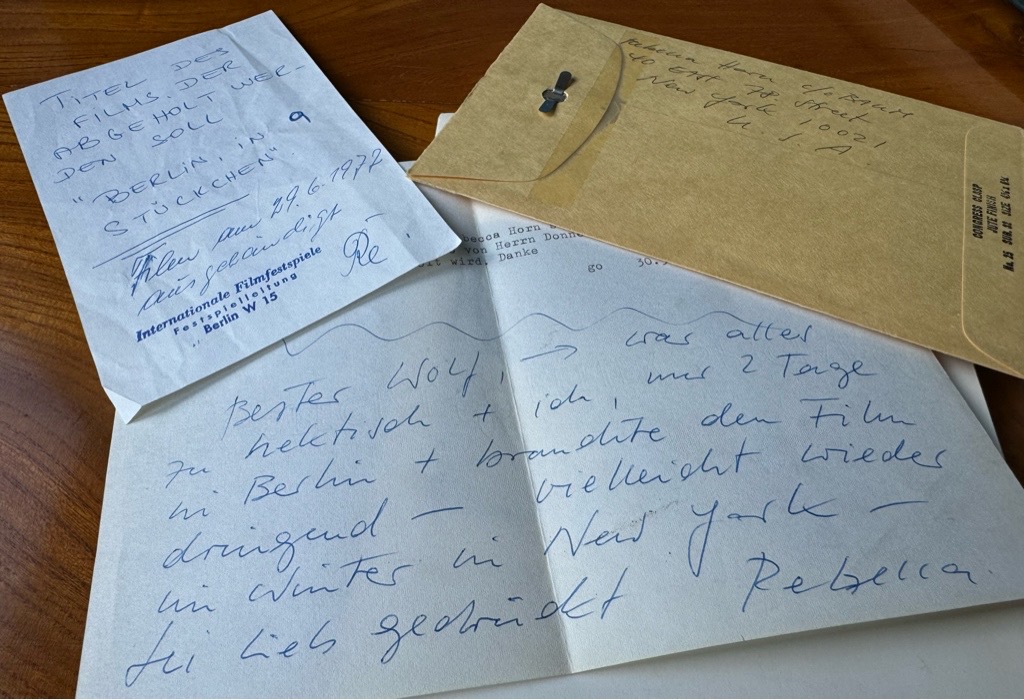 TITEL DES
FILMS, DER
ABGEHOLT WER-
DEN SOLL
"BERLIN, IN 9
STÜCKCHEN"
Film am 29.6.1977
ausgehändigt
Re
Internationale Filmfestspiele
Festspielleitung
Berlin W 15
Rebecca Horn c/o
40 East 78 Street
New York 10021
U. S. A.
CONGRESS CLASP
JUTE FINISH
No. 15
becca Horn
von Herrn Donne
wird. Danke
go 30.
Bester Wolf, → war alles
zu hektisch + ich, nur 2 Tage
in Berlin + brauchte den Film
dringend — vielleicht wieder
im Winter in New York —
sei lieb gedrückt Rebecca